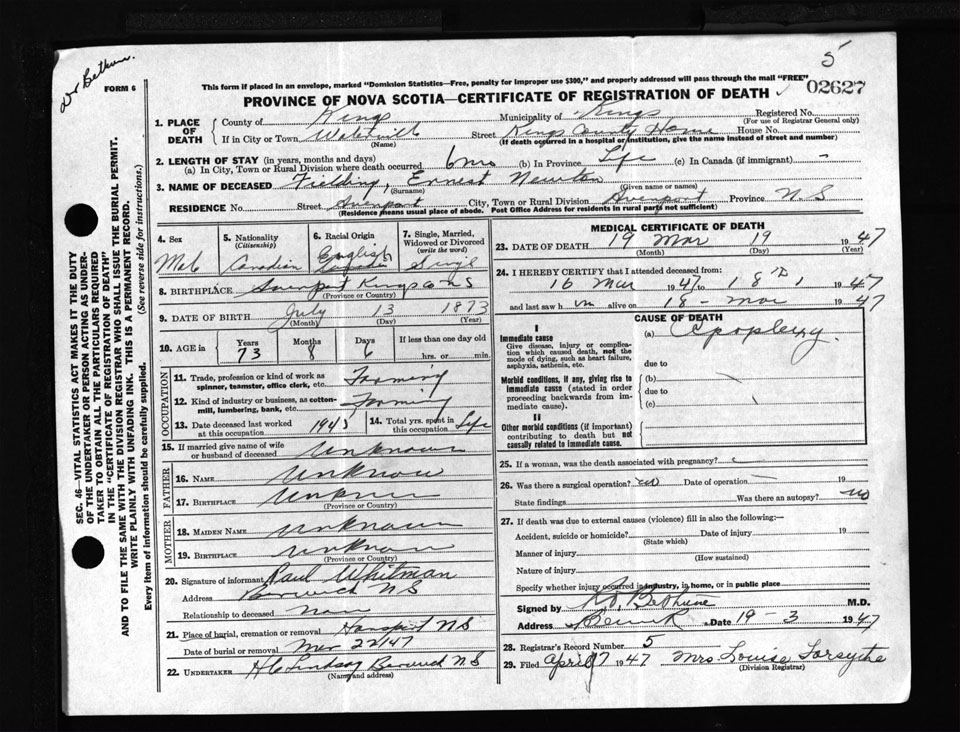 Dr Bethune
5
FORM 6
This form if placed in an envelope, marked "Dominion Statistics—Free, penalty for improper use $300," and properly addressed will pass through the mail "FREE"
PROVINCE OF NOVA SCOTIA—CERTIFICATE OF REGISTRATION OF DEATH
02627
1. PLACE OF DEATH
County of Kings Municipality of Kings Registered No.
(For use of Registrar General only)
If in City or Town Waterville Street Kings County Home House No.
(Name) (If death occurred in a hospital or institution, give the name instead of street and number)
2. LENGTH OF STAY (in years, months and days)
(a) In City, Town or Rural Division where death occurred 6 mo (b) In Province Life (c) In Canada (if immigrant) -
3. NAME OF DECEASED Fielding, Ernest Newton
(Surname) (Given name or names)
RESIDENCE No. Street City, Town or Rural Division Province N S
(Residence means usual place of abode. Post Office Address for residents in rural parts not sufficient)
4. Sex Male
5. Nationality (Citizenship) Canadian
6. Racial Origin English
7. Single, Married, Widowed or Divorced (write the word) Single
8. BIRTHPLACE Kings Co N S
(Province or Country)
9. DATE OF BIRTH July 13 1873
(Month) (Day) (Year)
10. AGE in Years 73 Months 8 Days 6 If less than one day old
hrs. or min.
OCCUPATION
11. Trade, profession or kind of work as spinner, teamster, office clerk, etc. Farming
12. Kind of industry or business, as cotton-mill, lumbering, bank, etc. Farming
13. Date deceased last worked at this occupation 194 14. Total yrs. spent in this occupation Life
15. If married give name of wife or husband of deceased Unknown
FATHER
16. NAME Unknown
17. BIRTHPLACE Unknown
(Province or Country)
MOTHER
18. MAIDEN NAME Unknown
19. BIRTHPLACE Unknown
(Province or Country)
20. Signature of informant Paul Whitman
Address Berwick N S
Relationship to deceased None
21. Place of burial, cremation or removal Hantsport N S
Date of burial or removal Mar 22/47
22. UNDERTAKER H C Lindsay Berwick N S
(Name and address)
MEDICAL CERTIFICATE OF DEATH
23. DATE OF DEATH 19 Mar 19 1947
(Month) (Day) (Year)
24. I HEREBY CERTIFY that I attended deceased from:
16 Mar 1947 to 18th 1947
and last saw him alive on 18 - Mar 1947
CAUSE OF DEATH
I
Immediate cause
Give disease, injury or complication which caused death, not the mode of dying, such as heart failure, asphyxia, asthenia, etc.
(a) Apoplexy.
due to
Morbid conditions, if any, giving rise to immediate cause (stated in order proceeding backwards from immediate cause).
(b)
due to
(c)
II
Other morbid conditions (if important) contributing to death but not causally related to immediate cause.
25. If a woman, was the death associated with pregnancy?
26. Was there a surgical operation? no Date of operation - 19
State findings Was there an autopsy? no
27. If death was due to external causes (violence) fill in also the following:—
Accident, suicide or homicide? Date of injury 19
(State which)
Manner of injury
(How sustained)
Nature of injury
Specify whether injury occurred in industry, in home, or in public place
Signed by Bethune M.D.
Address Berwick Date 19 - 3 1947
28. Registrar's Record Number 5
29. Filed April 7 1947 Mrs Louise Forsythe
(Division Registrar)
SEC. 46—VITAL STATISTICS ACT MAKES IT THE DUTY
OF THE UNDERTAKER OR PERSON ACTING AS UNDERTAKER TO OBTAIN ALL THE PARTICULARS REQUIRED
IN THE "CERTIFICATE OF REGISTRATION OF DEATH"
AND TO FILE THE SAME WITH THE DIVISION REGISTRAR WHO SHALL ISSUE THE BURIAL PERMIT.
WRITE PLAINLY WITH UNFADING INK. THIS IS A PERMANENT RECORD.
Every item of Information should be carefully supplied. (See reverse side for instructions.)